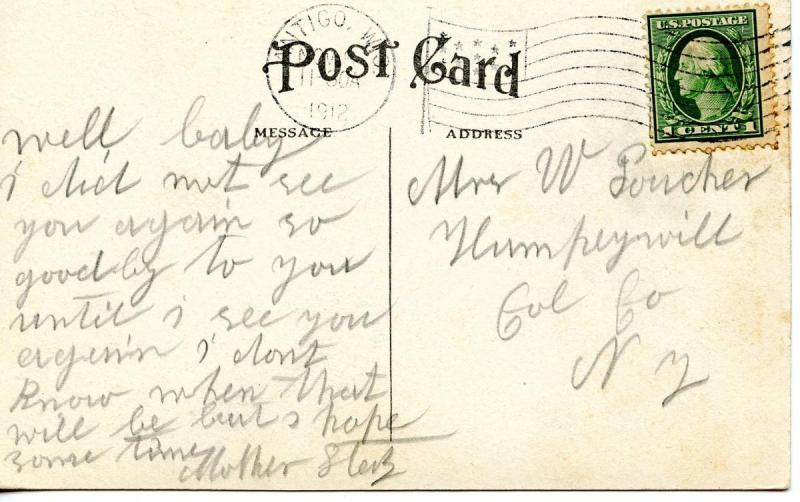 ANTIGO, WIS
11-30A
1912
Post Card
U.S. POSTAGE
1 CENT 1
MESSAGE
ADDRESS
well baby
i did not see
you again so
goodby to you
until i see you
again i dont
know when that
will be but i hope
some time
Mother
Mrs W Poucher
Humpeywill
Col Co
N Y